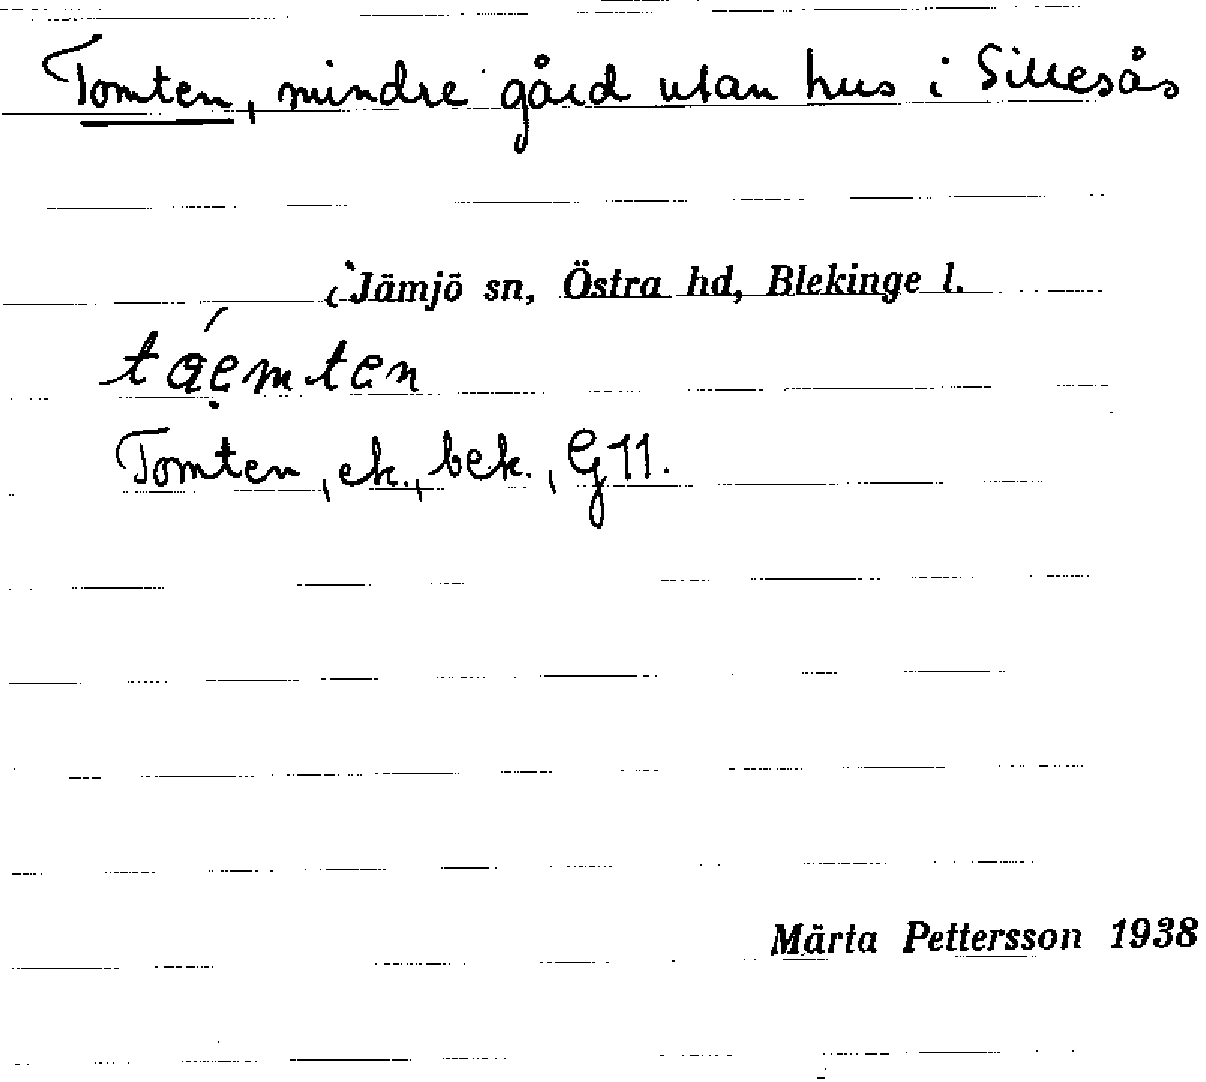 Tomten, mindre gård utan hus i Sillesås
i Jämjö sn, Östra hd, Blekinge l.
táemten
Tomten, ek., bek., G11.
Märta Pettersson 1938